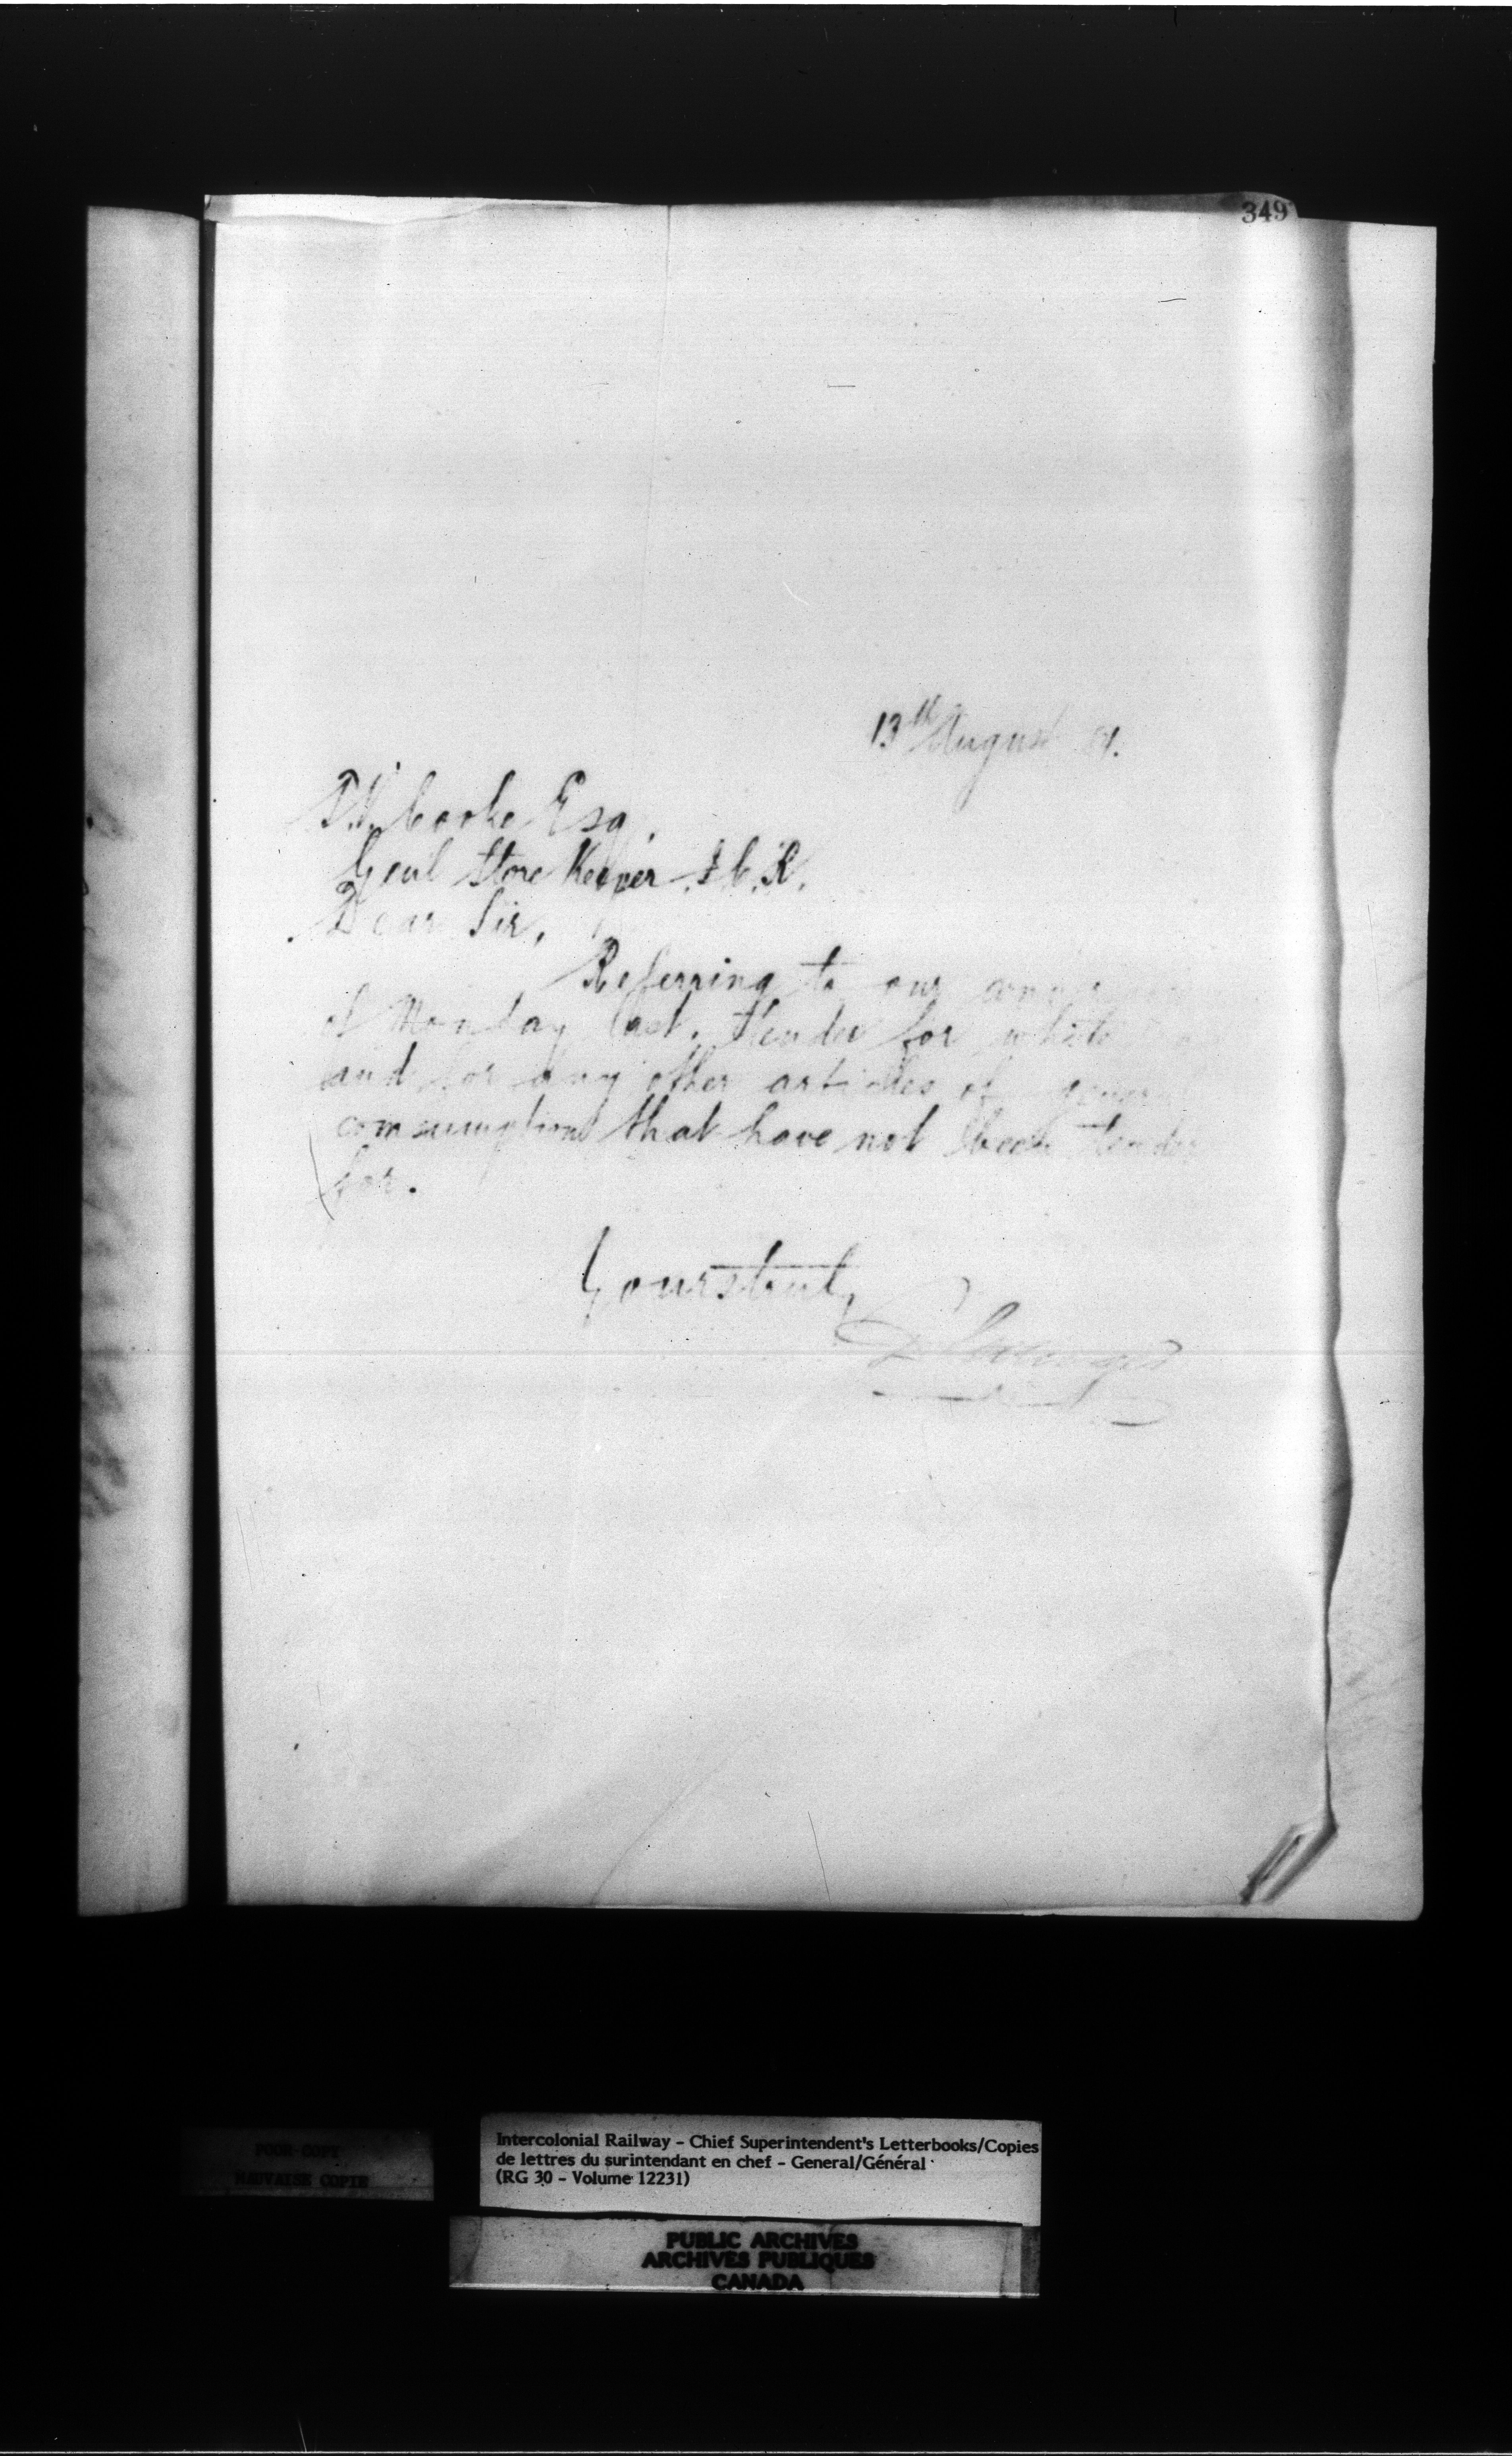 349
13th August 81.
Cooke Esq.
Genl Store Keeper I.C.R.
Dear Sir,
Referring to our
of Monday last, tender for white
and for any other articles of
consumption that have not been
for.
Yours truly
POOR COPY
MAUVAISE COPIE
Intercolonial Railway - Chief Superintendent's Letterbooks/Copies
de lettres du surintendant en chef - General/Général
(RG 30 - Volume 12231)
PUBLIC ARCHIVES
ARCHIVES PUBLIQUES
CANADA